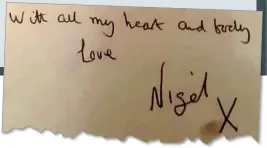 With all my heart and body
Love
Nigel
X